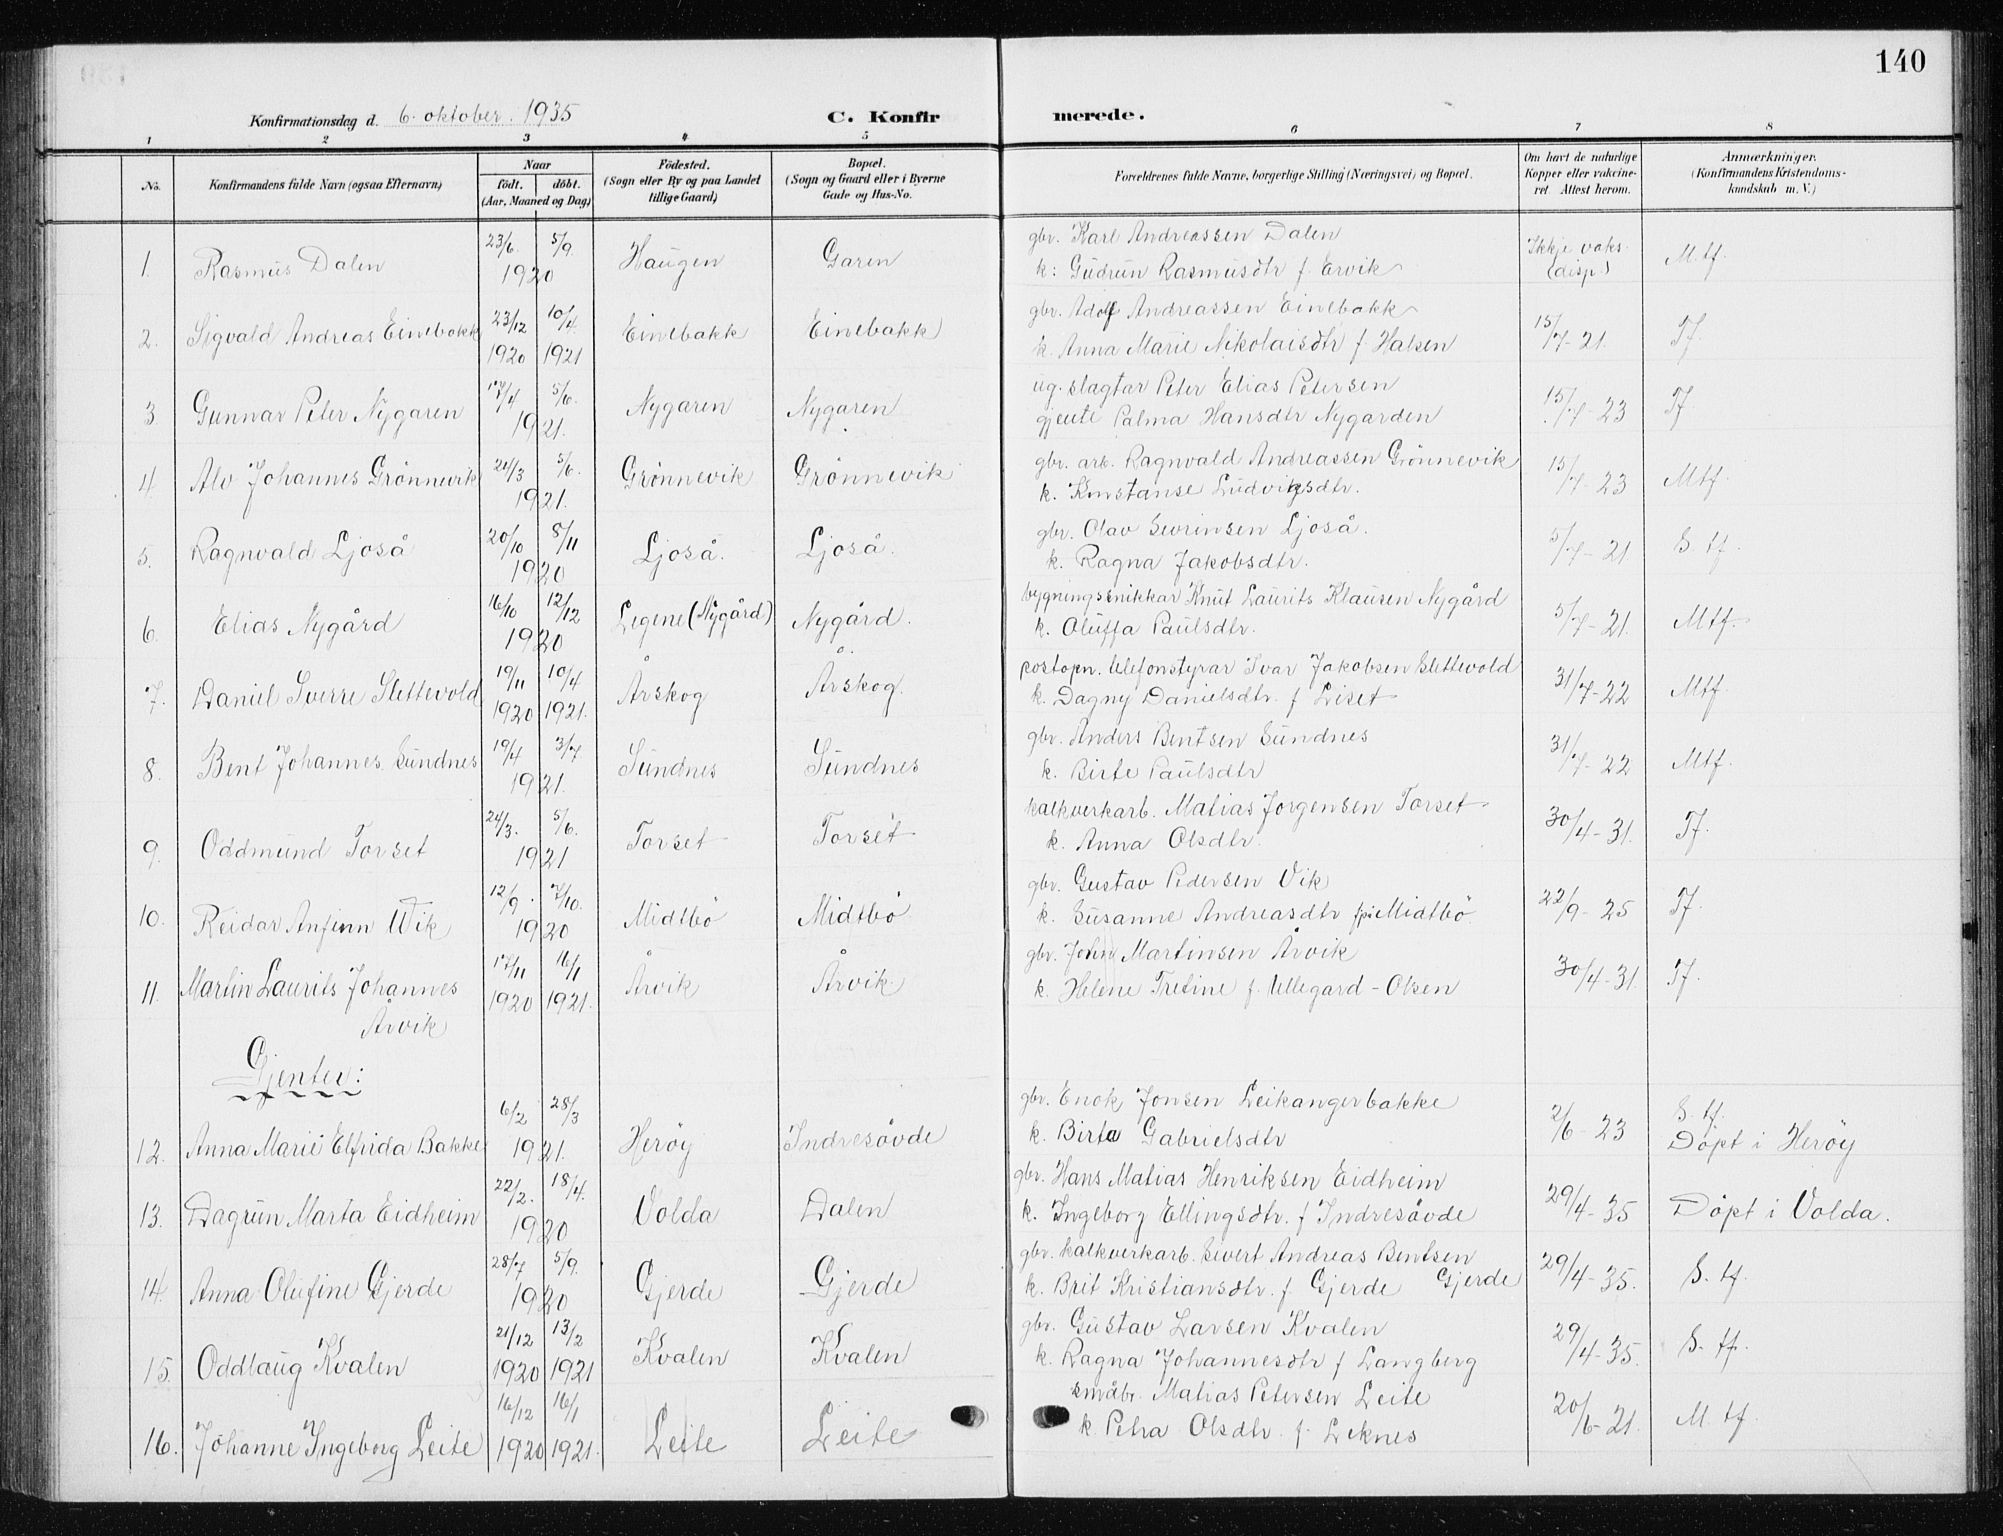 140
Konfirmationsdag d. 6. oktober. 1935
C. Konfirmerede.
1 2 3 4 5 6 7 8
No. Konfirmandens fulde Navn (ogsaa Efternavn) Naar født. døbt. (Aar, Maaned og Dag) Födested. (Sogn eller By og paa Landet tillige Gaard) Bopæl. (Sogn og Gaard eller i Byerne Gade og Hus-No. Forældrenes fulde Navne, borgerlige Stilling (Næringsvei) og Bopæl. Om havt de naturlige Kopper eller vakcineret. Attest herom. Anmærkninger. (Konfirmandens Kristendomskundskab m. V.)
1. Rasmus Dalen 23/6. 5/9. 1920 Haugen Garen gbr. Karl Andreassen Dalen
k: Gudrun Rasmusdtr f. Ervik Ikkje vaks. (disp.) M.tf.
2. Sigvald Andreas Einebakk 23/12 1920 10/4. 1921 Einebakk Einebakk gbr. Adolf Andreassen Einebakk
k. Anna Marie Nikolaisdtr f Halsen 15/7-21. Tf.
3. Gunnar Peter Nygaren 17/4 5/6. 1921. Nygaren Nygaren ug. slagtar Peter Elias Petersen
gjente Palma Hansdtr Nygarden 15/7-23 Tf
4 Alv Johannes Grønnevik 24/3 5/6. 1921. Grønnevik Grønnevik gbr. arb. Ragnvald Andreassen Grønnevik
k. Konstanse Ludvigsdtr. 15/7-23 Mtf.
5. Ragnvald Ljoså 20/10 5/11 1920 Ljoså. Ljoså. gbr. Olav Sevrinsen Ljoså.
k. Ragna Jakobsdtr. 5/7-21 S. tf.
6. Elias Nygård 16/10 12/12 1920 Legene (Nygård) Nygård. bygningssnikkar Knut Laurits Klausen Nygård
k. Oluffa Paulsdtr. 5/7-21. Mtf.
7. Daniel Sverre Slettevold 19/11 1920 10/4 1921. Årskog Årskog. postopn. telefonstyrar Ivar Jakobsen Slettevold
k. Dagny Danielsdtr. f Liset 31/7-22 Mtf.
8. Bent Johannes Sundnes 19/4 3/7 1921. Sundnes Sundnes gbr. Anders Bentsen Sundnes
k. Birte Paulsdtr 31/7-22 Mtf.
9. Oddmund Torset 24/3. 5/6. 1921 Torset Torset kalkverkarb. Matias Jorgensen Torset
k. Anna Olsdtr. 30/4-31. Tf.
10. Reidar Anfinn Wik 12/9. 7/10. 1920 Midtbö Midtbö gbr. Gustav Pedersen Vik
k. Susanne Andreasdtr Midtbö. 22/9-25 Tf.
11. Martin Laurits Johannes Årvik 17/11 1920 16/1 1921. Årvik Årvik gbr. John Martinsen Årvik
k. Helene Tretine f. Ullegard-Olsen 30/4-31. Tf.
Gjenter:
12. Anna Marie Elfrida Bakke 6/2 28/3 1921. Herøy Indresövde gbr. Enok Jonsen Leikangerbakke
k. Birte Gabrielsdtr 2/6-23 S. tf. Döpt i Heröy
13. Dagrun Marta Eidheim 22/2. 18/4. 1920 Volda Dalen gbr. Hans Matias Henriksen Eidheim
k. Ingeborg Ellingsdtr. f Indresövde 29/4-35 Döpt i Volda.
14. Anna Olufine Gjerde 28/7 5/9. 1920 Gjerde Gjerde gbr. kalkverkarb. Sivert Andreas Bentsen
k. Brit Kristiansdtr. f. Gjerde Gjerde 29/4-35. S. tf.
15. Oddlaug Kvalen 21/12 1920 13/2 1921 Kvalen Kvalen gbr. Gustav Larsen Kvalen
k. Ragna Johannesdtr f Langberg 29/4-35. S. tf.
16. Johanne Ingeborg Leite 16/12 1920 16/1 1921. Leite Leite småbr. Matias Petersen Leite
k. Petra Olsdtr. f. Leknes 20/6-21. M. tf